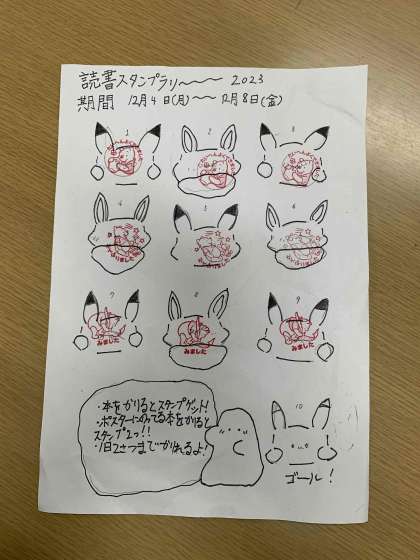 読書スタンプラリー～～～ 2023
期間 12月4日(月)～～12月8日(金)
1 2 3
4 5 6
みました
7 8 9
みました みました みました
・本をかりるとスタンプゲット!
・ポスターにのってる本をかりると
スタンプ2つ!!
・1日2さつまでかりれるよ!
10
ゴール!